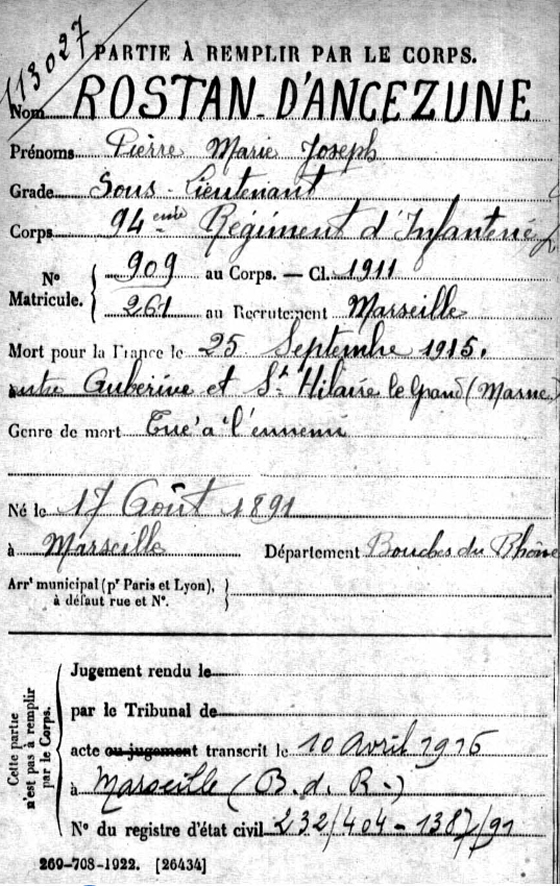 113027
PARTIE À REMPLIR PAR LE CORPS.
Nom ROSTAN D'ANCEZUNE
Prénoms Pierre Marie Joseph
Grade Sous-Lieutenant
Corps 94eme Régiment d'Infanterie
N° Matricule. { 909 au Corps. — Cl. 1911
261 au Recrutement Marseille
Mort pour la France le 25 Septembre 1915.
entre Auberive et St Hilaire le Grand (Marne)
Genre de mort Tué à l'ennemi
Né le 17 Août 1891
à Marseille Département Bouches du Rhône
Arrt municipal (pr Paris et Lyon), }
à défaut rue et N°.
Cette partie n'est pas à remplir par le Corps.
Jugement rendu le
par le Tribunal de
acte ou jugement transcrit le 10 Avril 1916
à Marseille (B. d. R.)
N° du registre d'état civil 232/404 - 1387/91
269-708-1922. [26434]